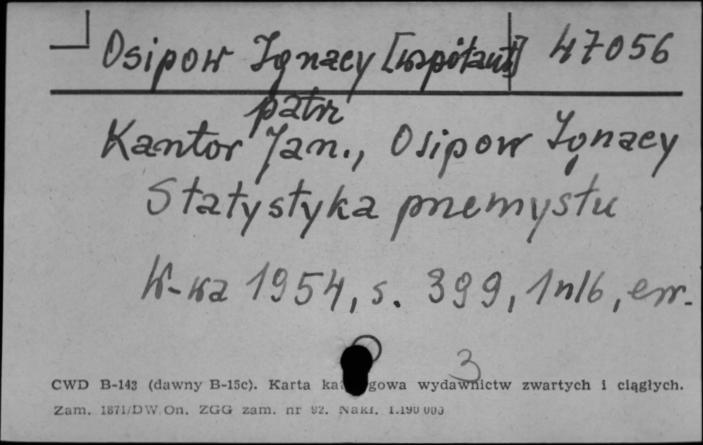 Osipow Ignacy [współaut] 47056
patrz
Kantor Jan., Osipow Ignacy
Statystyka przemysłu
W-wa 1954, s. 399, 1 nlb, err.
3
CWD B-143 (dawny B-15c). Karta katalogowa wydawnictw zwartych i ciągłych.
Zam. 1871/DW.On. ZGG zam. nr 92. Nakł. 1.190 000